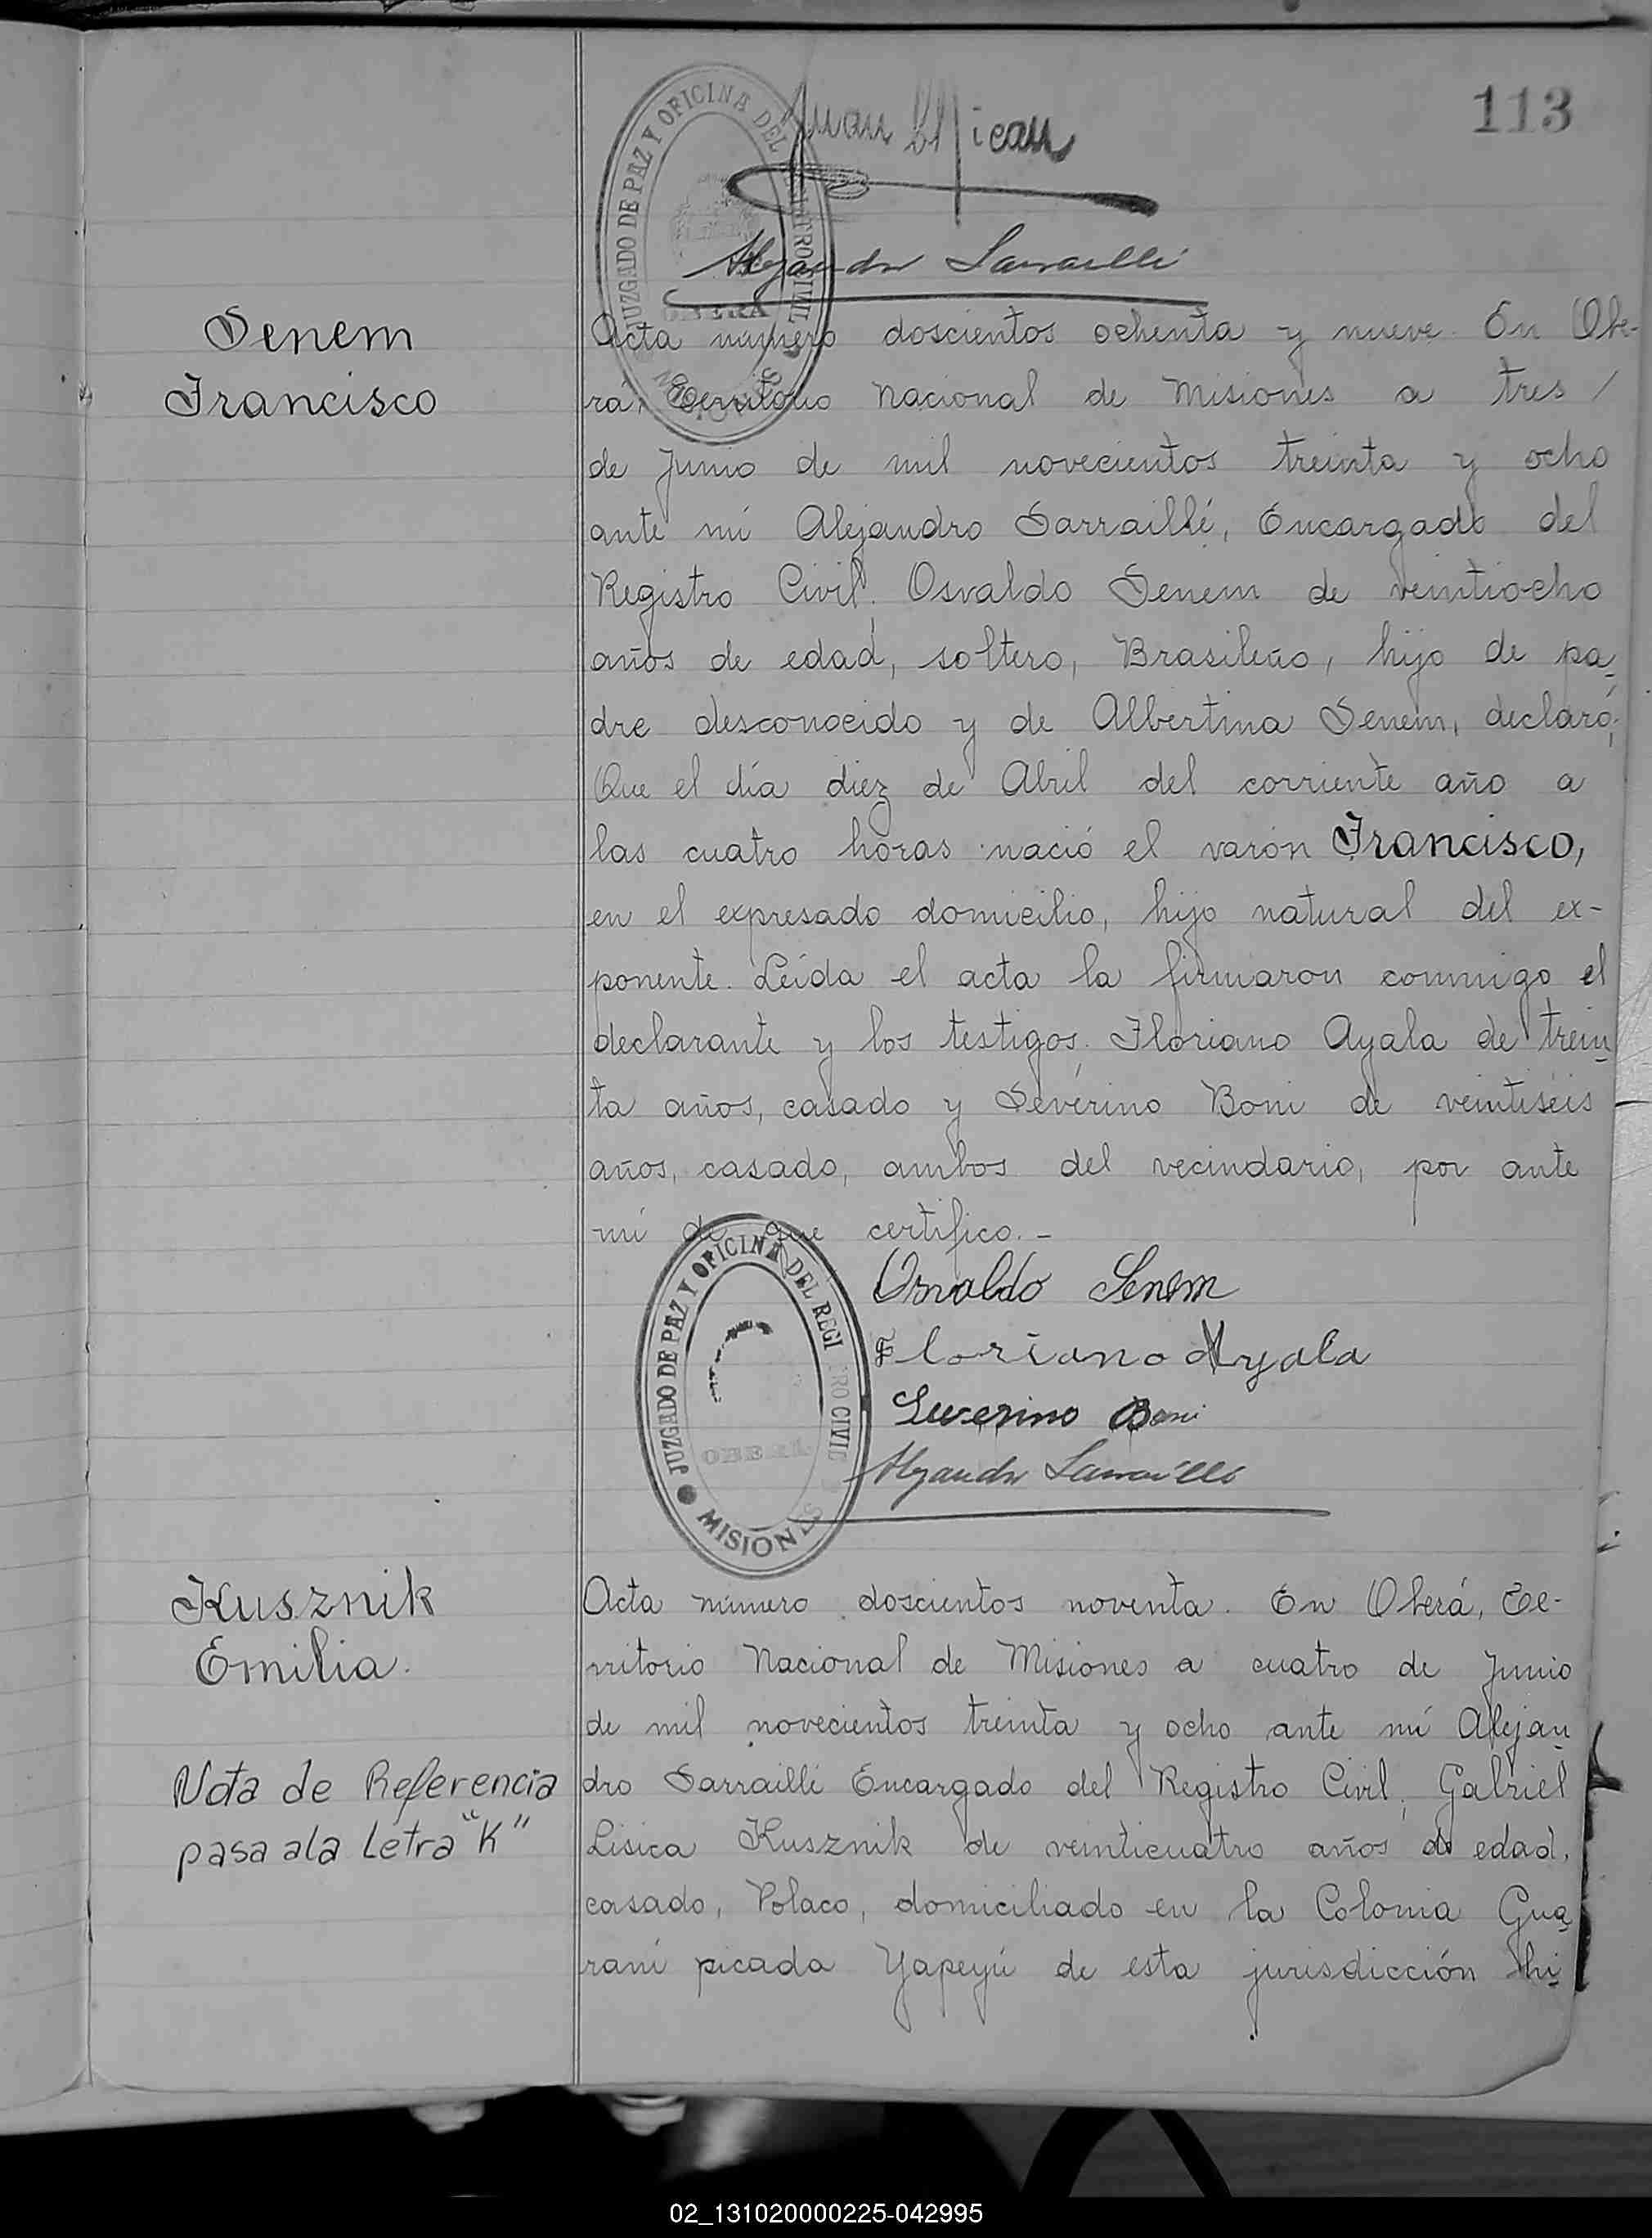 113
JUZGADO DE PAZ Y OFICINA DEL REGISTRO CIVIL
OBERA
MISIONES
Juan
Alejandro Sarraillé
Senem
Francisco
Acta número doscientos ochenta y nueve. En Obe-
rá, Territorio Nacional de Misiones a tres /
de Junio de mil novecientos treinta y ocho
ante mí Alejandro Sarraillé, Encargado del
Registro Civil. Osvaldo Senem de veintiocho
años de edad, soltero, Brasileño, hijo de pa-
dre desconocido y de Albertina Senem, declaró;
Que el día diez de Abril del corriente año a
las cuatro horas nació el varón Francisco,
en el expresado domicilio, hijo natural del ex-
ponente. Leída el acta la firmaron conmigo el
declarante y los testigos: Floriano Ayala de trein-
ta años, casado y Severino Boni de veintiseis
años, casado, ambos del vecindario, por ante
mí de que certifico.-
Osvaldo Senem
Floriano Ayala
Severino Boni
Alejandro Sarraillé
JUZGADO DE PAZ Y OFICINA DEL REGISTRO CIVIL
OBERA
MISIONES
Kusznik
Emilia.
Acta número doscientos noventa. En Oberá, Te-
rritorio Nacional de Misiones a cuatro de Junio
de mil novecientos treinta y ocho ante mí Alejan-
dro Sarraillé Encargado del Registro Civil; Gabriel
Lisica Kusznik de veinticuatro años de edad,
casado, Polaco, domiciliado en la Colonia Gua-
raní picada Yapeyú de esta jurisdicción hi-
Nota de Referencia
pasa a la Letra "K"
02_131020000225-042995